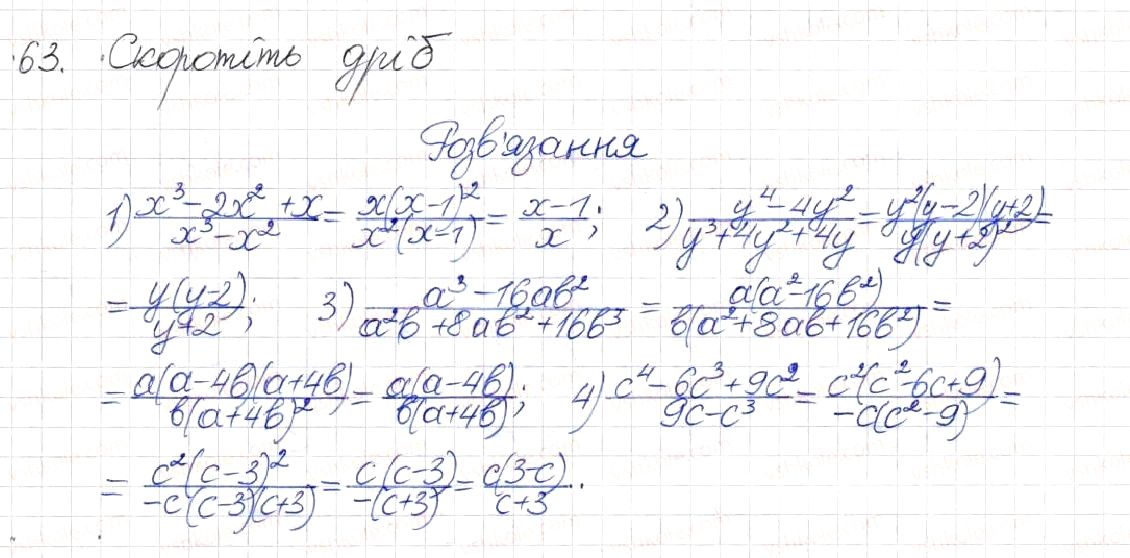 63. Скоротіть дріб
Розв'язання
1) (x³-2x²+x)/(x³-x²) = (x(x-1)²)/(x²(x-1)) = (x-1)/x; 2) (y⁴-4y²)/(y³+4y²+4y) = (y²(y-2)(y+2))/(y(y+2)²) =
= (y(y-2))/(y+2); 3) (a³-16ab²)/(a²b+8ab²+16b³) = (a(a²-16b²))/(b(a²+8ab+16b²)) =
= (a(a-4b)(a+4b))/(b(a+4b)²) = (a(a-4b))/(b(a+4b)); 4) (c⁴-6c³+9c²)/(9c-c³) = (c²(c²-6c+9))/(-c(c²-9)) =
= (c²(c-3)²)/(-c(c-3)(c+3)) = (c(c-3))/(-(c+3)) = (c(3-c))/(c+3)..